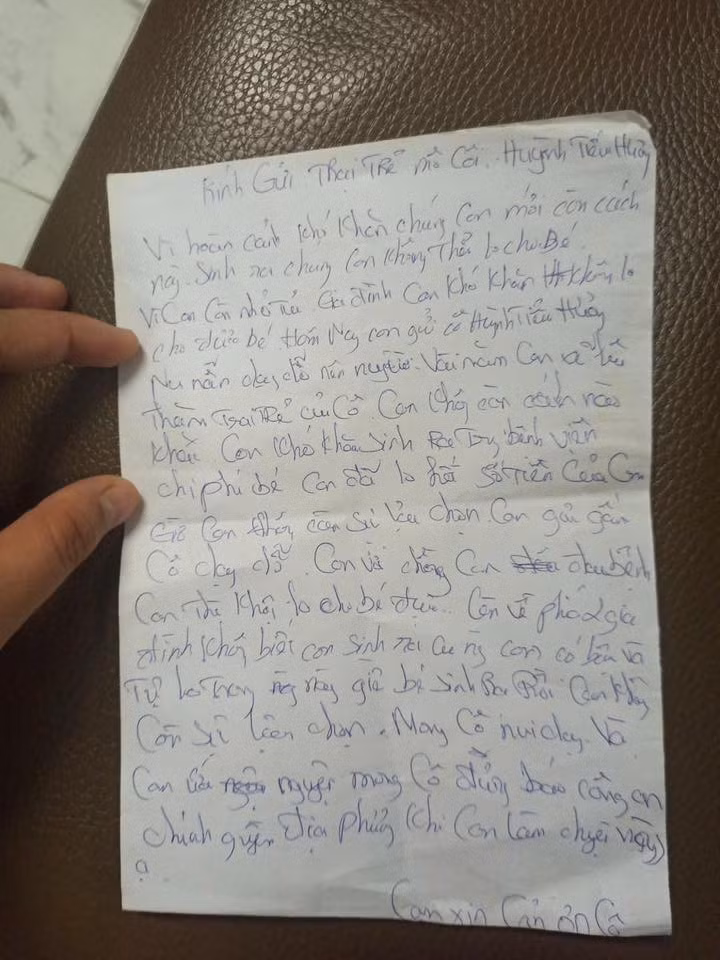 Kính Gửi Trại Trẻ mồ Côi. Huỳnh Tiểu Hường
Vì hoàn cảnh khó khăn chúng con mới còn cách
này. Sinh ra chúng Con không Thể lo cho Bé.
Vì Con Còn nhỏ Gia đình Con khó khăn không lo
cho được bé Hôm Nay con gửi cô Huỳnh Tiểu Hường
dạy dỗ nên người. Vài năm Con sẽ
thăm Trại Trẻ của Cô. Con không còn cách nào
khác Con khó khăn sinh bệnh viện
chi phí bé Con đã lo hết số Tiền Của Con
Giờ Con không còn sự lựa chọn. Con gửi gắm
Cô dạy dỗ. Con và chồng Con đều bệnh
Con Thì khó lo cho bé được. Còn về phía gia
đình không biết con sinh ra con có bầu và
Tự lo giờ bé sinh Ra Rồi Con không
Còn sự lựa chọn. Mong Cô nuôi dạy. Và
Con nguyện mong Cô đừng báo công an
chính quyền địa phương khi Con làm chuyện này
ạ
Con xin Cảm ơn Cô